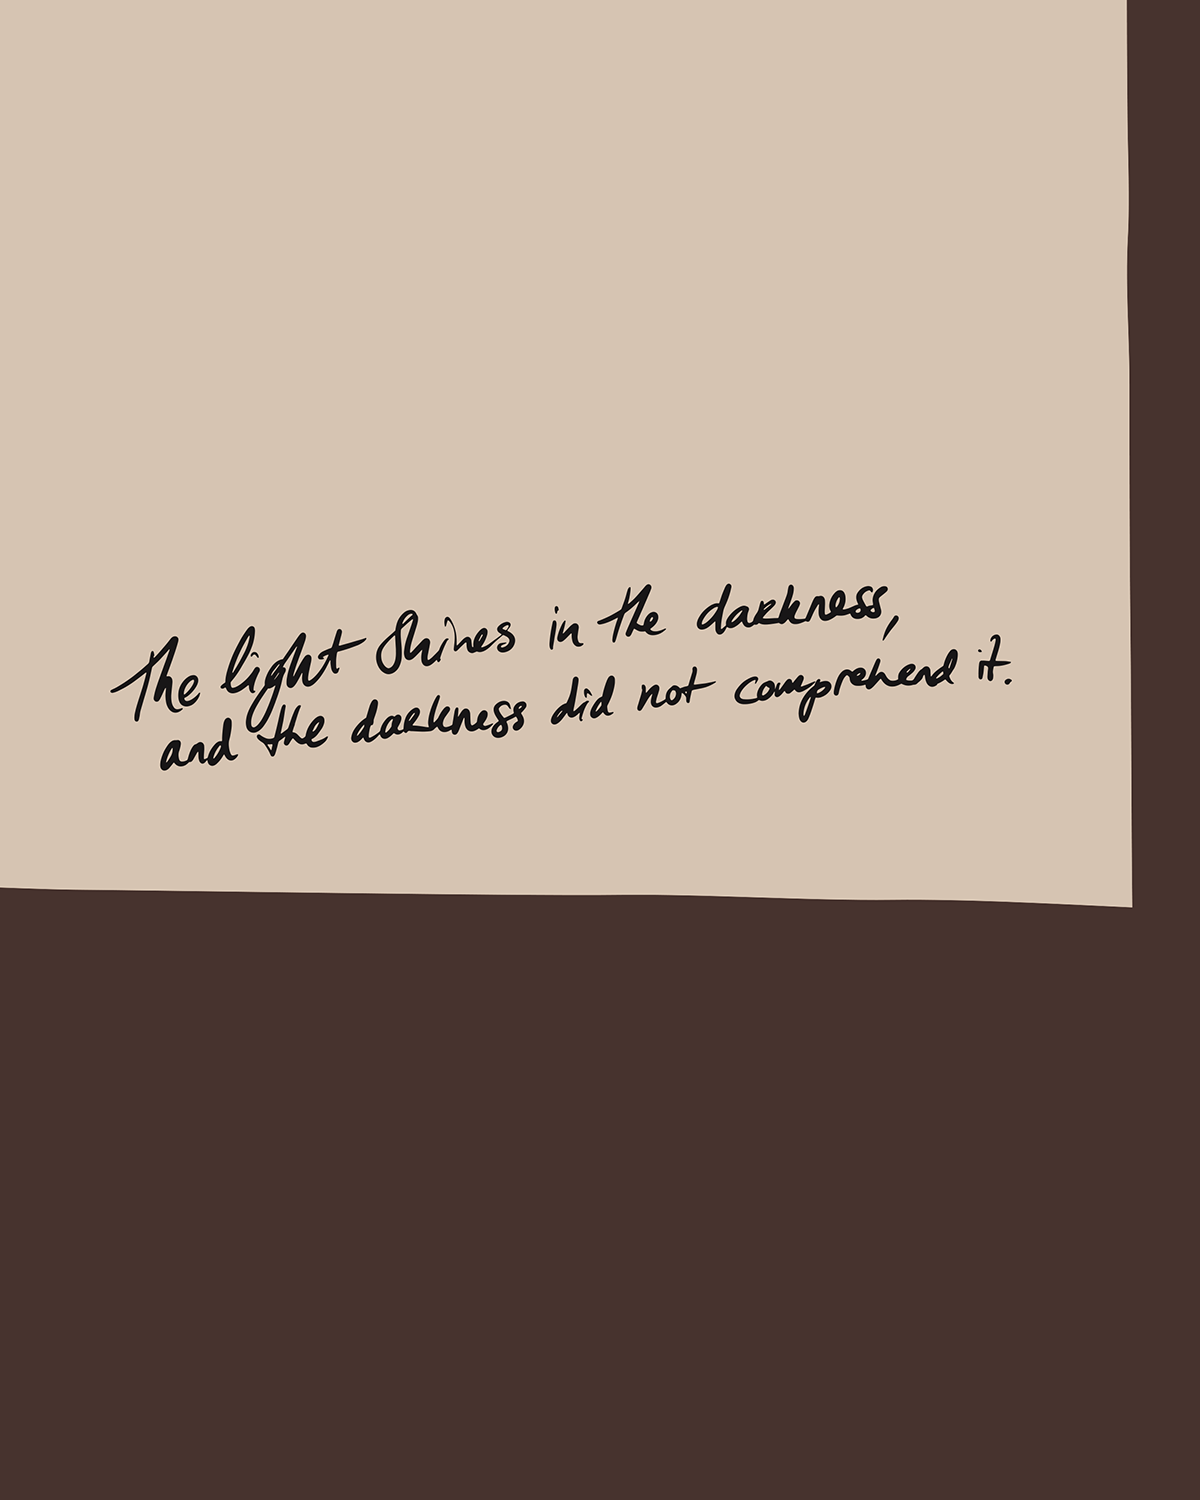 The light shines in the darkness,
and the darkness did not comprehend it.